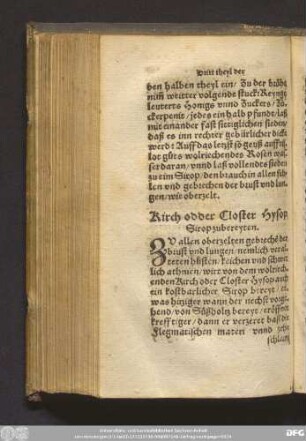 Dritt theyl der
ben halben theyl ein / Zu der brühe
nim weitter volgende stuck: Reyngeleuterts Honigs vnnd Zuckers /
ckerpenit / jedes ein halb pfundt / laß
mit einander fast sittiglichen sieden /
daß es inn rechter gebürlicher dicke
werd: Auff das letzst so geuß
lot güts wolriechendes Rosen
ser daran / vnnd laß vollendes sieden
zu eim Sirop / den brauch in allen
len vnd gebrechen der brust vnd lungen / wie oberzelt.
Kirch odder Closter Hysop
Sirop zubereyten.
ZU allen oberzelten gebreche der
brust vnd lungen / nemlich veralteten hüsten / keichen vnd
lich athmen / wirt von dem wolriechenden Kirch oder Closter Hysop auch
ein kostbarlicher Sirop bereyt /
was hitziger wann der nechst
hend / von Süßholz bereyt /
krefftiger / dann er verzeret baß die
Flegmatischen materi vnnd
schleim